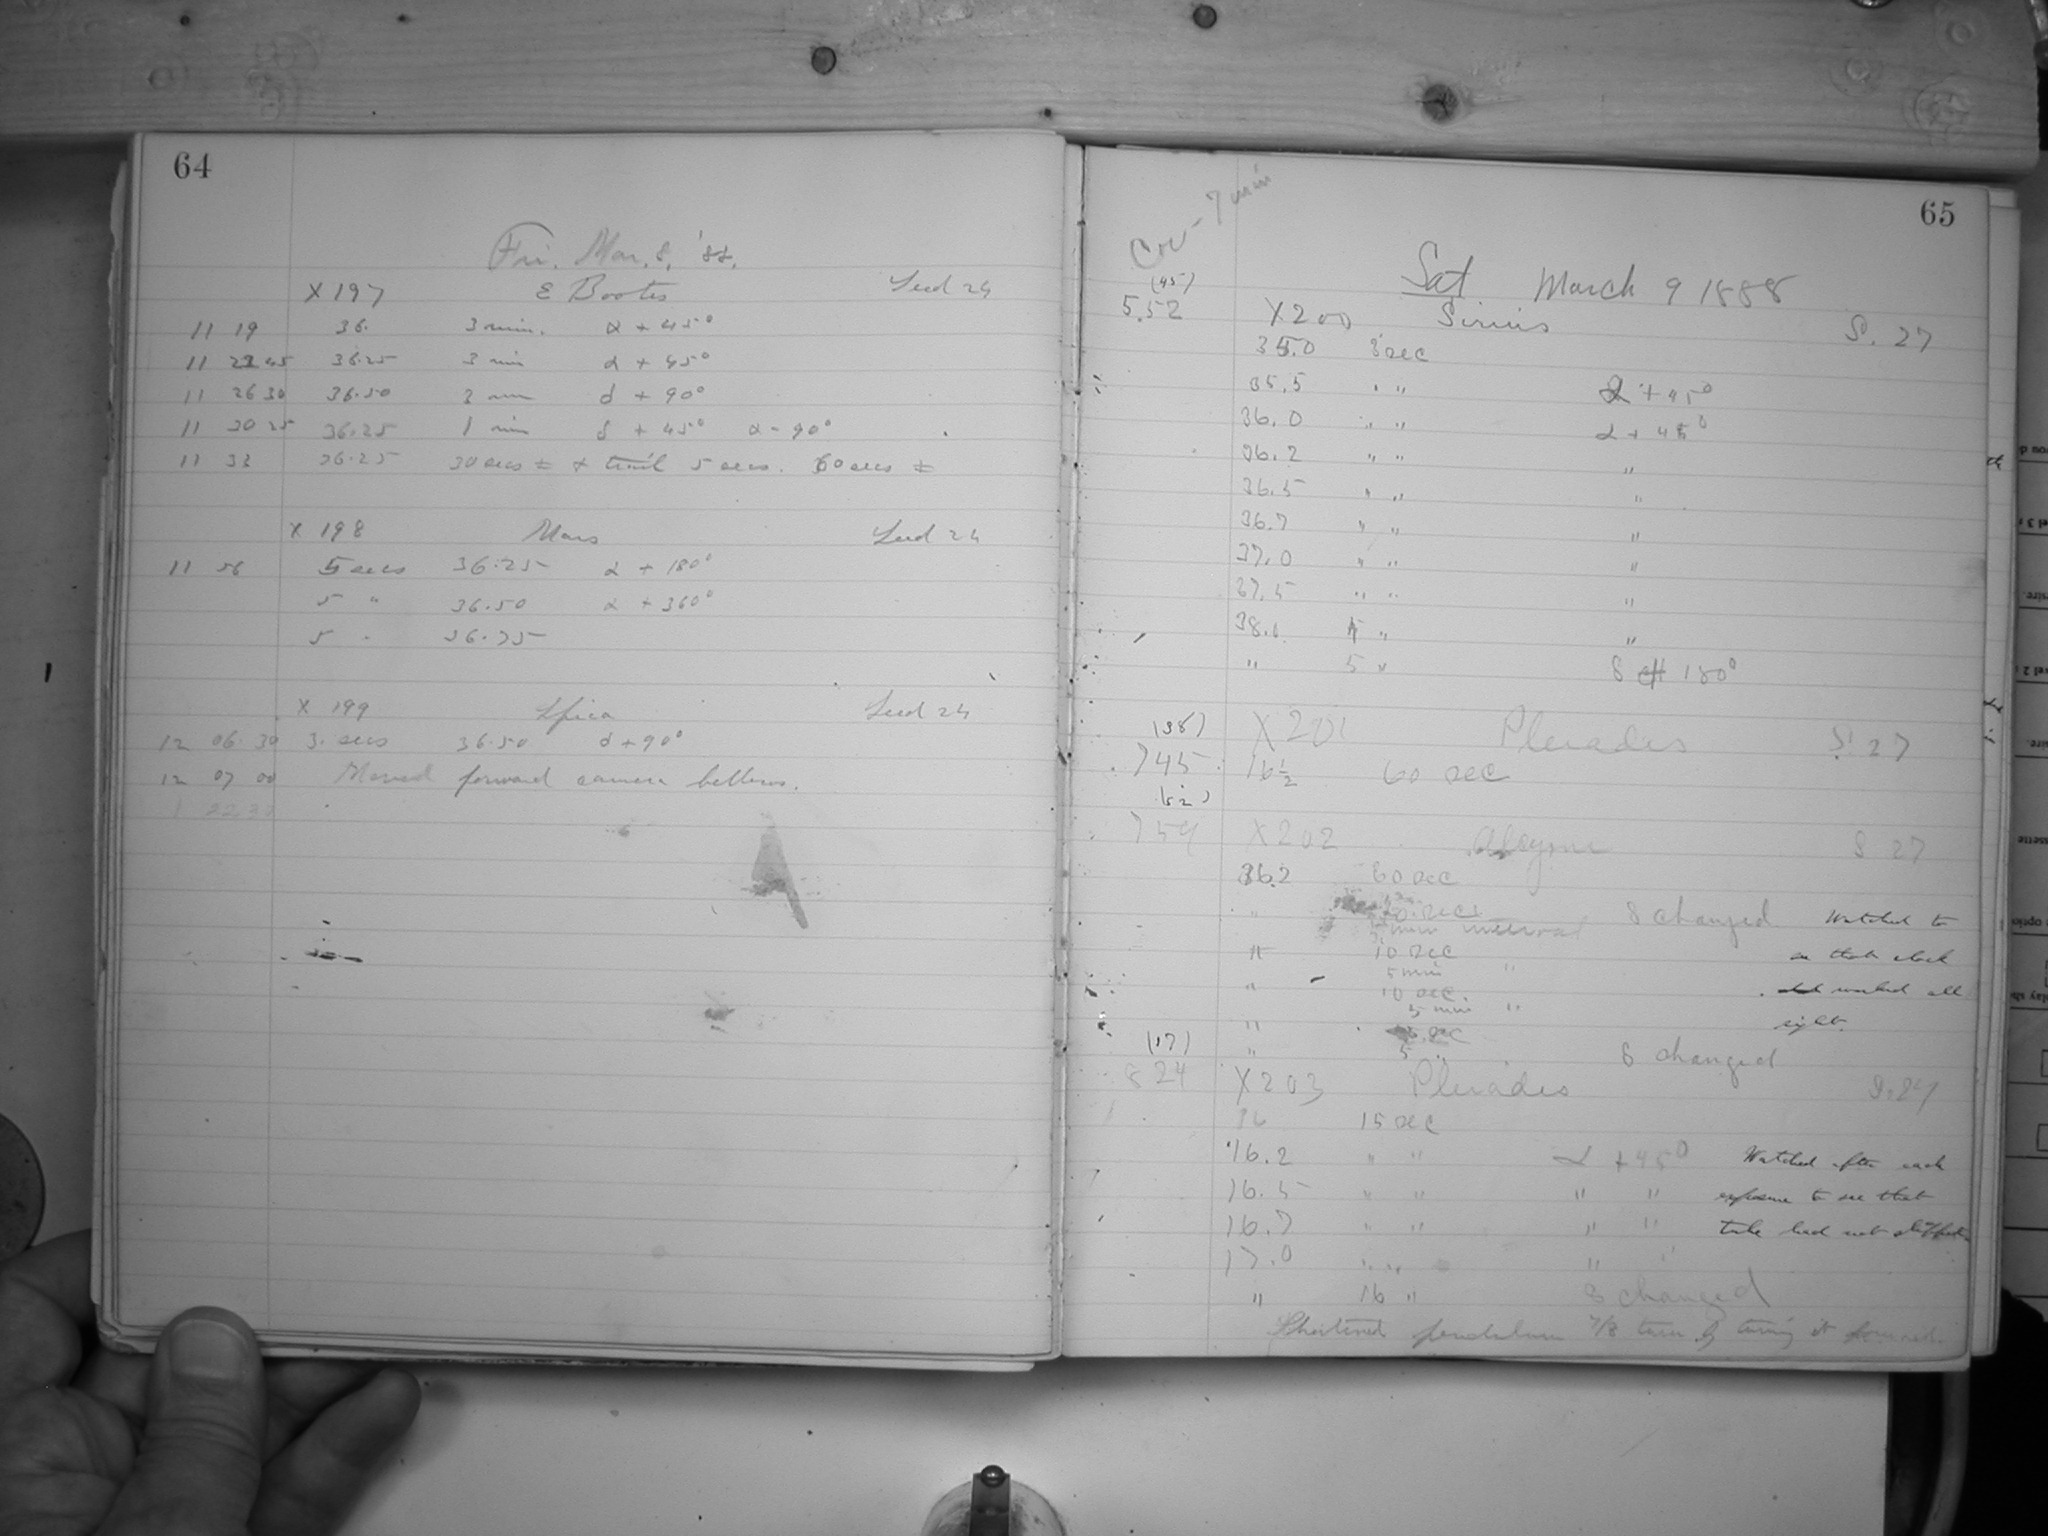 64
Fri. Mar. 8, '88.
X 197 E Bootis Seed 24
11 19 36. 3 min. α + 45°
11 23 45 36.25 3 min α + 45°
11 26 30 36.50 3 min δ + 90°
11 30 25 36.25 1 min δ + 45° α - 90°
11 33 36.25 30 secs = + trail 5 secs. 60 secs =
X 198 Mars Seed 24
11 56 5 secs 36.25 α + 180°
5 " 36.50 α + 360°
5 " 36.75
X 199 Spica Seed 24
12 06 30 3. secs 36.50 δ + 90°
12 07 00 Moved forward camera bellows.
1 22 30
65
Cor - 7 min
Sat March 9 1888
(45)
5.52 X200 Sirius S. 27
35.0 3 sec
35.5 " " α + 45°
36.0 " " α + 45°
36.2 " " "
36.5 " " "
36.7 " " "
37.0 " " "
37.5 " " "
38.0 " "
" 5 " δ 180°
(38)
745 X201 Pleiades S. 27
16½ 60 sec
(52)
759 X202 Alcyone S 27
36.2 60 sec
" sec δ changed Watched to
5 min interval
" 10 sec see that clock
5 min "
" 10 sec. worked all
5 min "
" sec right.
" 5 " δ changed
(17)
8 24 X203 Pleiades S. 27
36 15 sec
16.2 " " α + 45° Watched after each
16.5 " " " " exposure to see that
16.7 " " " " tube had not slipped
17.0 " " " "
" 16 " δ changed
Shortened pendulum 7/8 turn by turning it forward.